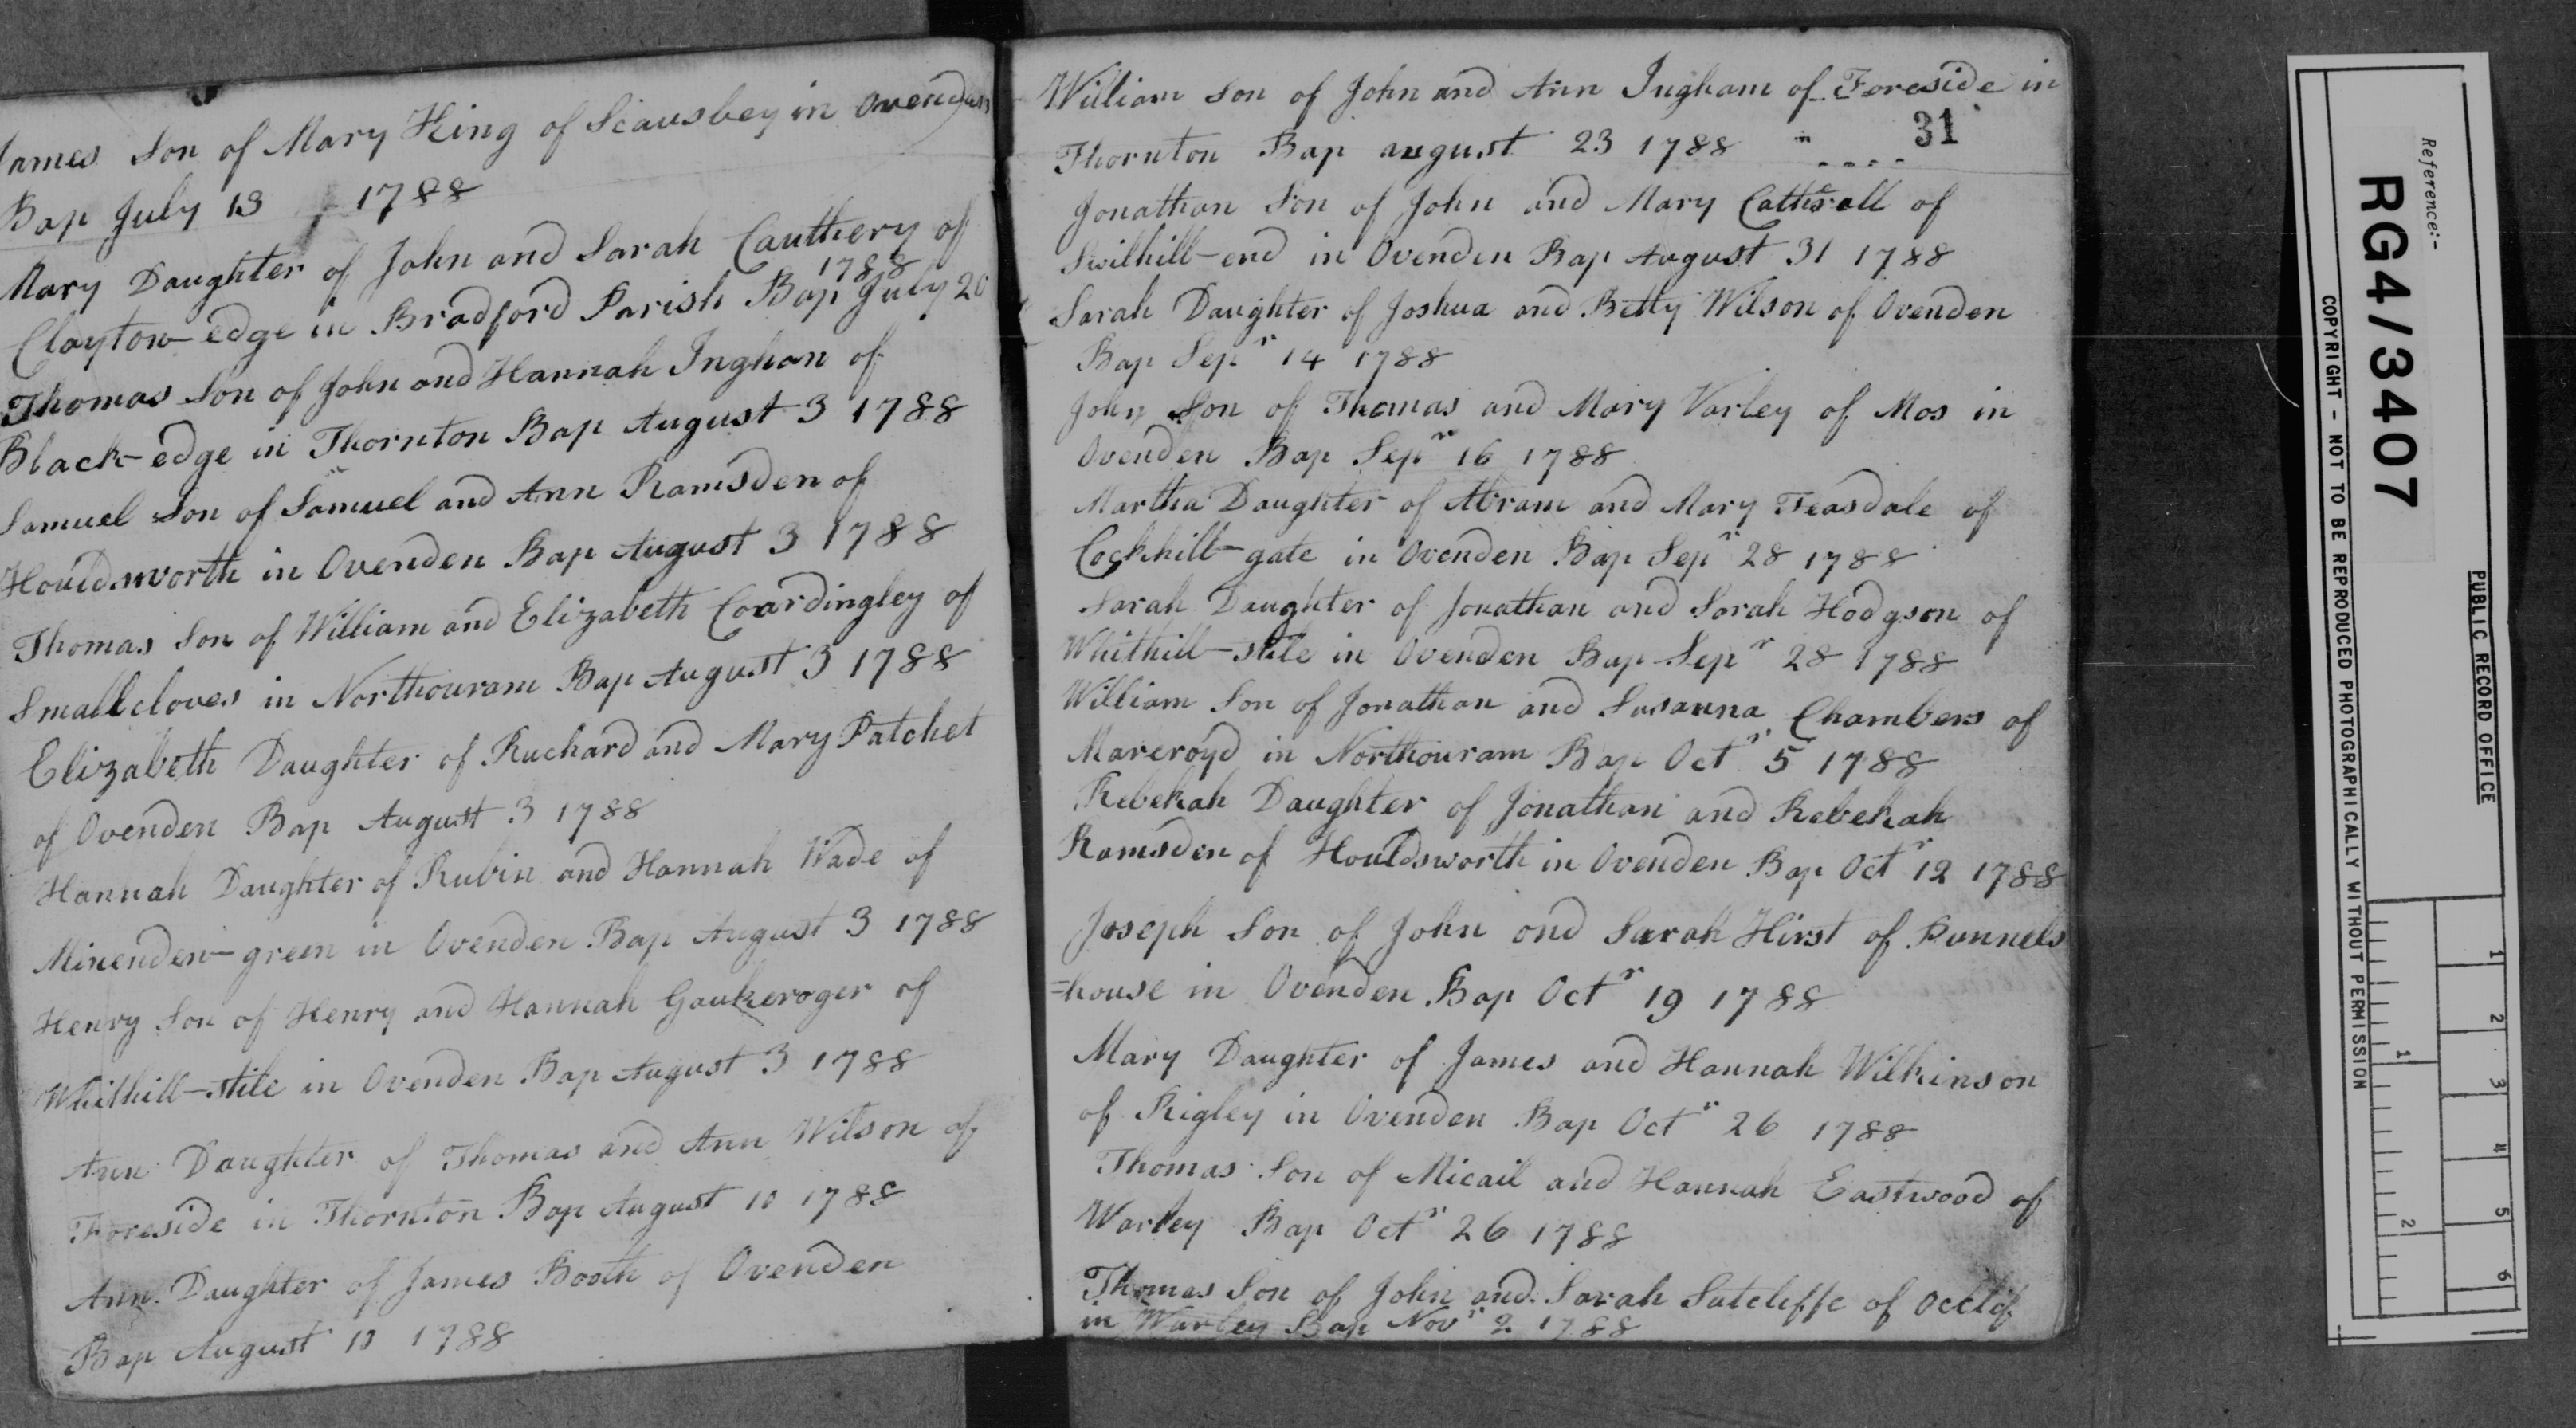 James Son of Mary King of Scausbey in Ovenden
Bap July 13 1788
Mary Daughter of John and Sarah Cauthery of
Clayton-edge in Bradford Parish Bap July 20
1788
Thomas Son of John and Hannah Inghan of
Black-edge in Thornton Bap August 3 1788
Samuel Son of Samuel and Ann Ramsden of
Houldsworth in Ovenden Bap August 3 1788
Thomas Son of William and Elizabeth Coardingley of
Smallcloves in Northouram Bap August 3 1788
Elizabeth Daughter of Ruchard and Mary Patchet
of Ovenden Bap August 3 1788
Hannah Daughter of Rubin and Hannah Wade of
Mixenden-green in Ovenden Bap August 3 1788
Henry Son of Henry and Hannah Gaukeroger of
Whithill-stile in Ovenden Bap August 3 1788
Ann Daughter of Thomas and Ann Wilson of
Foreside in Thornton Bap August 10 1788
Ann Daughter of James Booth of Ovenden
Bap August 10 1788
William Son of John and Ann Ingham of Foreside in
Thornton Bap august 23 1788
31
Jonathan Son of John and Mary Catherall of
Swilhill-end in Ovenden Bap August 31 1788
Sarah Daughter of Joshua and Betty Wilson of Ovenden
Bap Sepr 14 1788
John Son of Thomas and Mary Varley of Mos in
Ovenden Bap Sepr 16 1788
Martha Daughter of Abram and Mary Teasdale of
Cockhill-gate in Ovenden Bap Sepr 28 1788
Sarah Daughter of Jonathan and Sarah Hodgson of
Whithill-stile in Ovenden Bap Sepr 28 1788
William Son of Jonathan and Susanna Chambers of
Mareroyd in Northouram Bap Octr 5 1788
Rebekah Daughter of Jonathan and Rebekah
Ramsden of Houldsworth in Ovenden Bap Octr 12 1788
Joseph Son of John and Sarah Hirst of Punnels
=house in Ovenden Bap Octr 19 1788
Mary Daughter of James and Hannah Wilkinson
of Rigley in Ovenden Bap Octr 26 1788
Thomas Son of Micail and Hannah Eastwood of
Warley Bap Octr 26 1788
Thomas Son of John and Sarah Sutcliffe of
in Warley Bap Novr 2 1788
PUBLIC RECORD OFFICE
Reference:-
RG4/3407
COPYRIGHT - NOT TO BE REPRODUCED PHOTOGRAPHICALLY WITHOUT PERMISSION
1 2 3 4 5 6
1 2